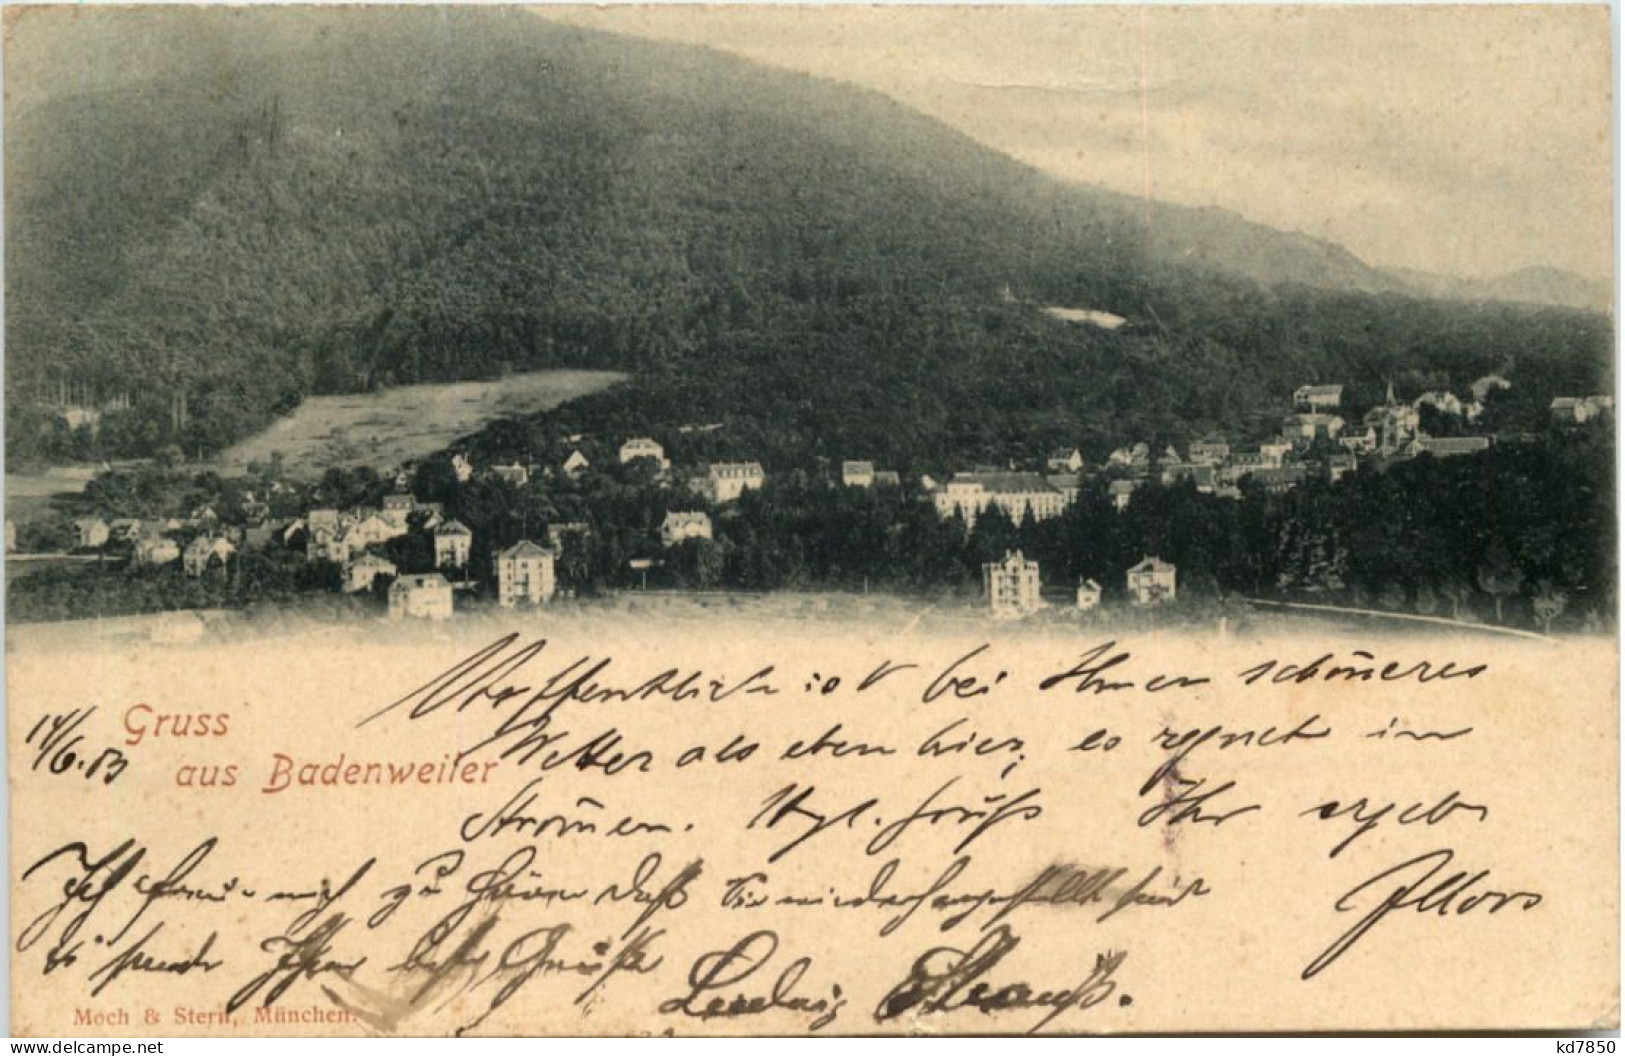 Gruss
aus Badenweiler
14/6.03
Hoffentlich ist bei Ihnen schöneres
Wetter als eben hier, es regnet in
Strömen. Hzl. Gruß Ihr ergeb.
Ich freue mich zu hören daß Sie wiederhergestellt sind
& sende Ihnen beste Grüße
Ludwig Strauß.
Moch & Stern, München.
delcampe.net
kd7850